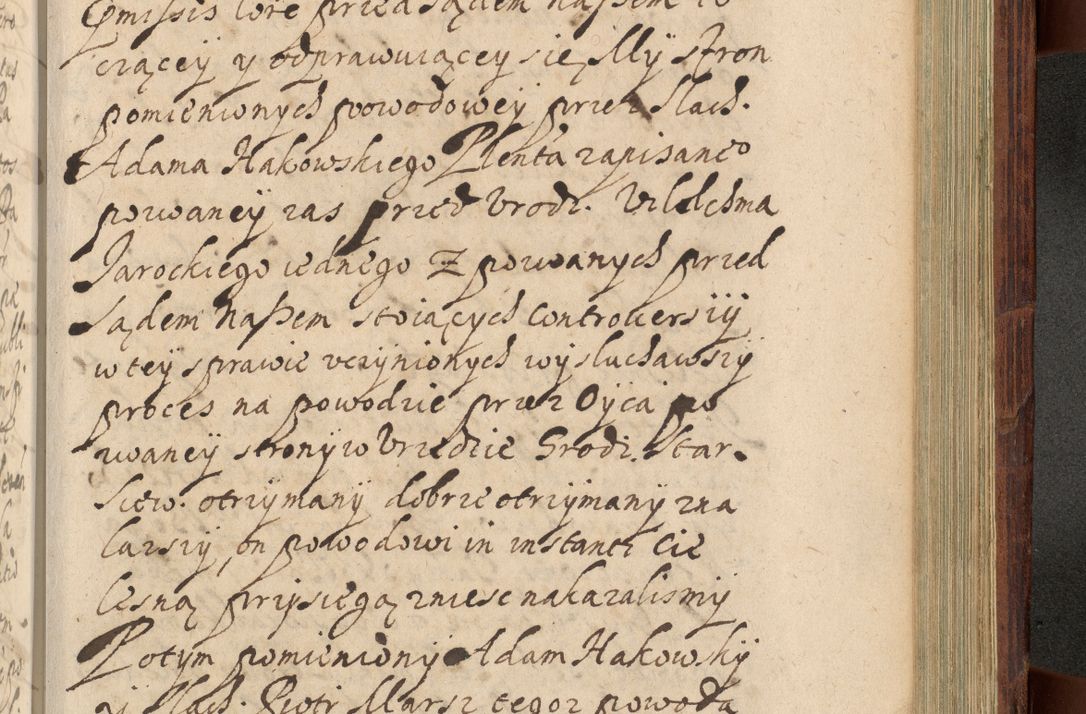 Omissis lore przed Sądem naszem to
czącey y odprawuiącey się My stron
pomienionych powodowey przez Slach.
Adama Hakowskiego Plenta zapisane°
pozwaney zas przed Vrodz. Vilelhma
Jarockiego iednego z pozwanych przed
Sądem naszem stoiących Controversiy
w tey sprawie vczynionych wysluchawszy
proces na powodzie przez Oyca po
zwaney strony w Vrzedzie Grodz. Star-
sciew. otrzymany dobrze otrzymany zna
lazszy, on powodowi in instanti Cie
lesną przysiegą zniesc nakazalismy
Potym pomieniony Adam Hakowsky
y Slach. Piotr Marsz tegoz powoda